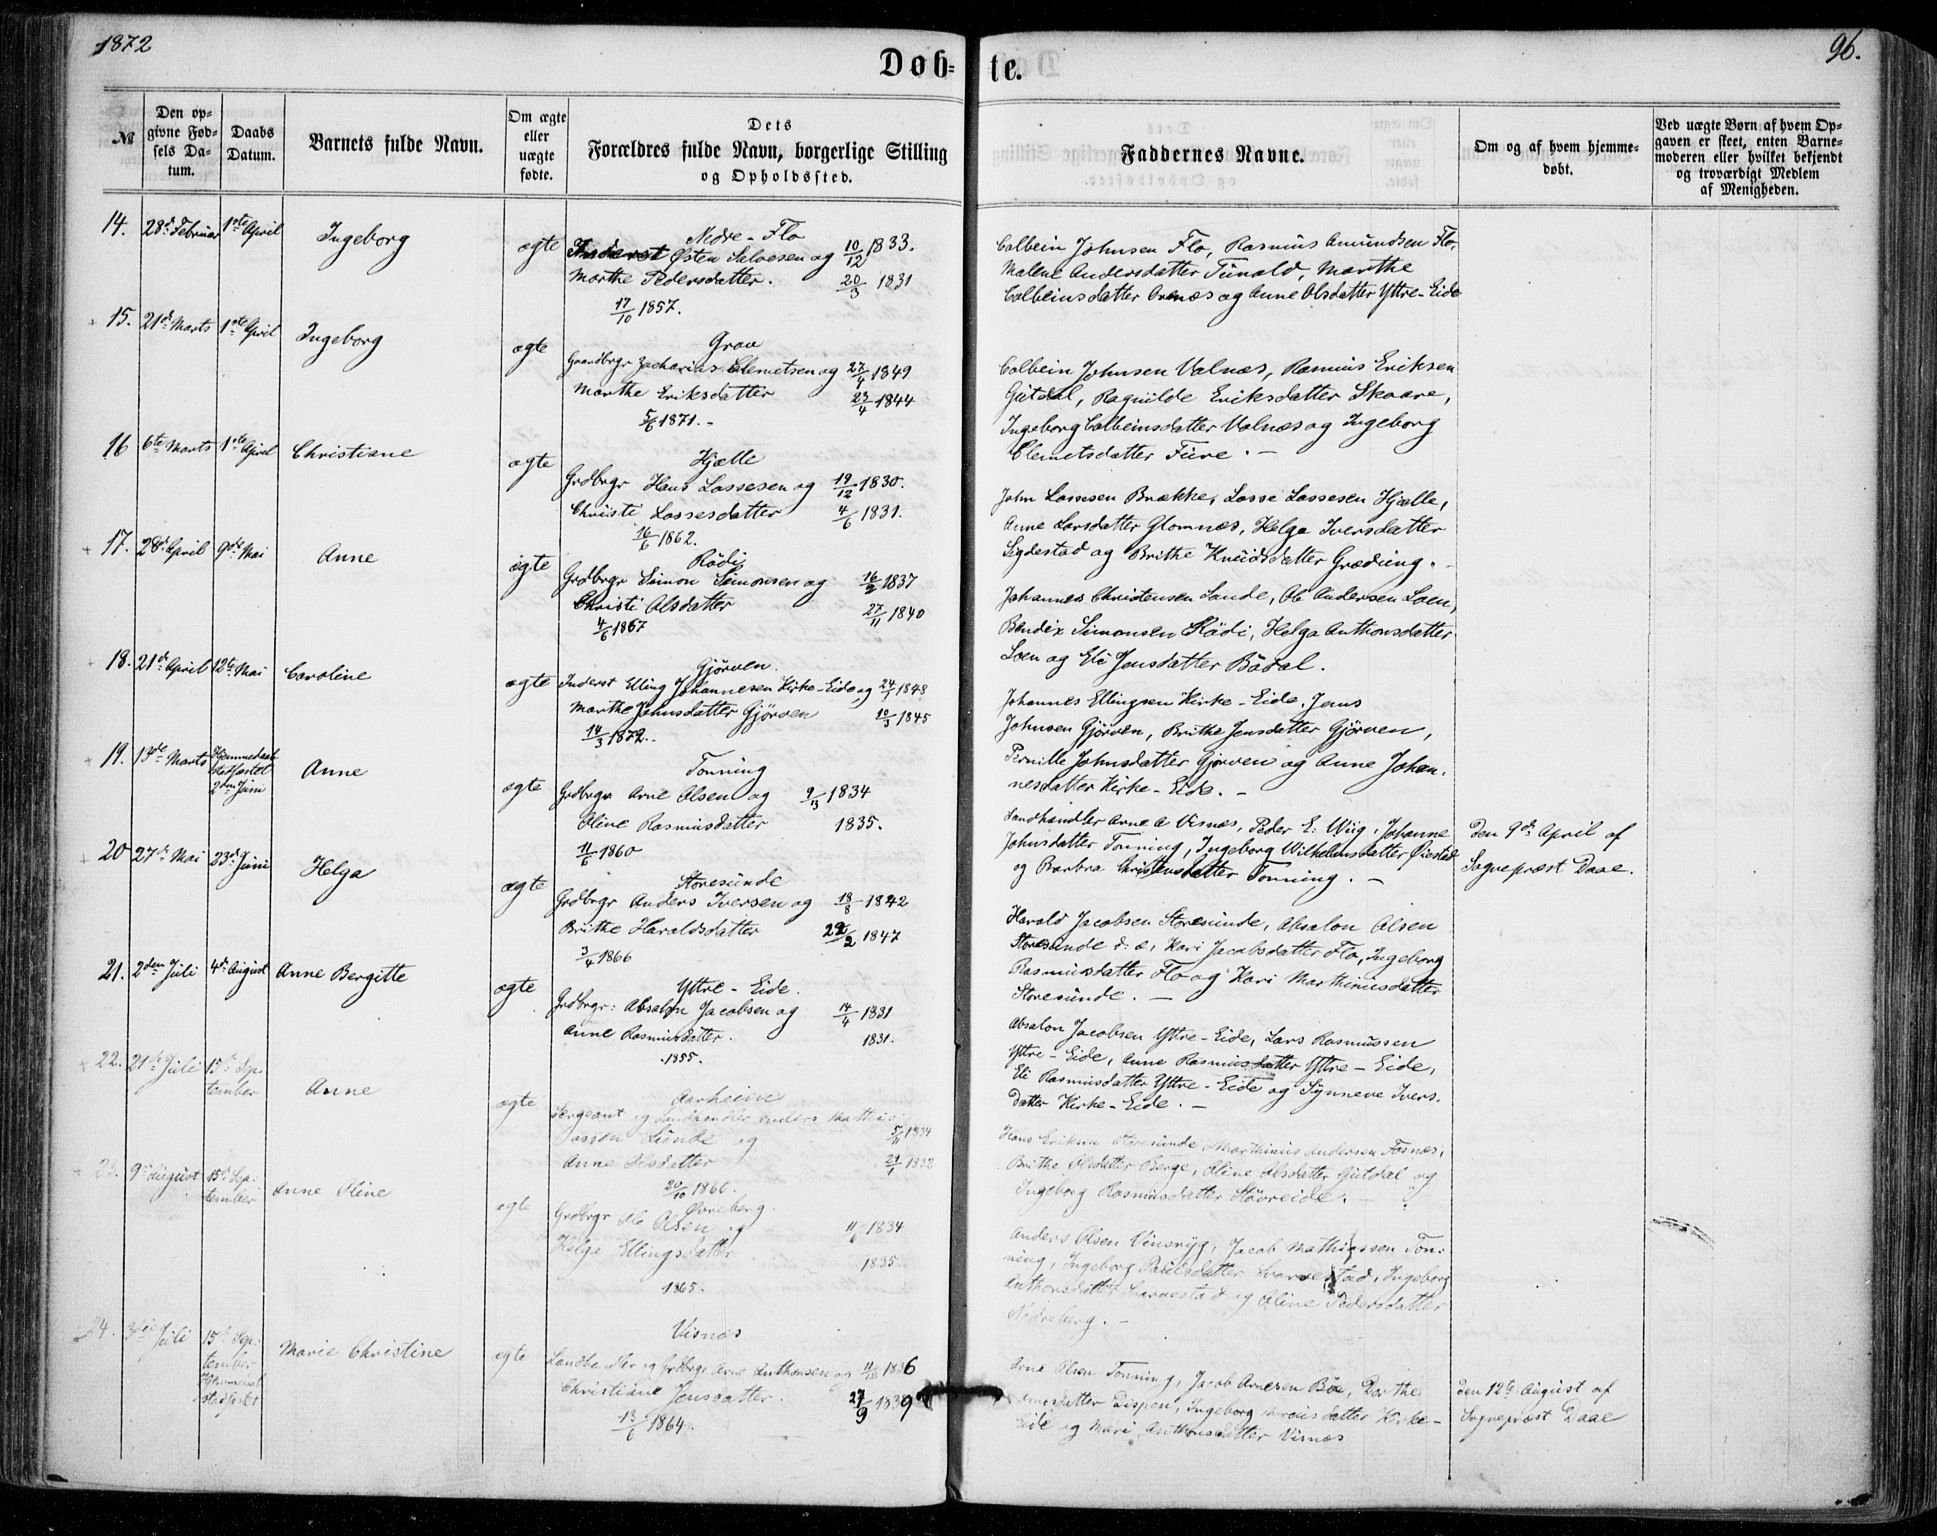 1872
96.
Døb-te.
№
Den op-
givne Fød-
sels Da-
tum.
Daabs
Datum.
Barnets fulde Navn.
Om ægte
eller
uægte
fødte.
Dets
Forældres fulde Navn, borgerlige Stilling
og Opholdssted.
Faddernes Navne.
Om og af hvem hjemme-
døbt.
Ved uægte Børn af hvem Op-
gaven er skeet, enten Barne-
moderen eller hvilket bekjendt
og troværdigt Medlem
af Menigheden.
14. 28de Februar 1ste April Ingeborg ægte
Nedre-Flo
Østen Salvesen og 10/12 1833.
Marthe Pedersdatter. 20/3 1831
17/10 1857.
Colbein Johnsen Flo, Rasmus Amundsen Flo,
Malene Andersdatter Tunold, Marthe
Colbeinsdatter Avnæs og Anne Olsdatter Yttre-Eide
+ 15. 21de Marts 1ste April Ingeborg ægte
Grov
Grandbrgr Zacharias Clemetsen og 27/4 1849
Marthe Eriksdatter 23/4 1844
5/6 1871.-
Colbein Johnsen Valnæs, Rasmus Eriksen
Gutdal, Ragnilde Eriksdatter Skaare,
Ingeborg Colbeinsdatter Valnæs og Ingeborg
Clemetsdatter Fure. -
16 6te Marts 1ste April Christiane ægte
Hjelle
Grdbrgr Hans Lassesen og 19/12 1830.
Christi Lassesdatter 4/6 1831.
16/6 1862.
John Lassesen Brække, Lasse Lassesen Hjelle,
Anne Larsdatter Glomnæs, Helga Iversdatter
Sigdestad og Brithe Knudsdatter Græding. -
+ 17. 28de April 9de Mai Anne ægte
Rødi
Grdbrgr Simon Simonsen og 16/2 1837
Christi Olsdatter 27/11 1840
4/6 1867
Johannes Christensen Sande, Ole Andersen Loen,
Bendix Simonsen Rødi, Helga Anthonsdatter
Loen og Eli Jensdatter Bødal.
+ 18. 21de April 12te Mai Caroline ægte
Gjørven.
Inderst Elling Johannesen Kirke-Eide og 24/1 1848
Marthe Johnsdatter Gjørven 10/3 1845
14/3 1872.
Johannes Ellingsen Kirke-Eide, Jens
Johnsen Gjørven, Brithe Jensdatter Gjørven,
Pernille Johnsdatter Gjørven og Anne Johan-
nesdatter Kirke-Eide. -
+ 19. 13de Marts Hjemmedaab
stadfæstet
2den Juni Anne ægte
Tonning
Grdbrgr Arne Olsen og 9/13 1834
Oline Rasmusdatter 1835.
11/6 1860
Landhandler Arne A Visnæs, Peder E. Wiig, Johanne
Johnsdatter Tonning, Ingeborg Wilhelmsdatter Øiestad
og Barbra Christensdatter Tonning. -
Den 9de April af
Sognepræst Daae.
+ 20 27de Mai 23de Juni Helga ægte
Storesunde
Grdbrgr Anders Iversen og 18/8 1842
Brithe Haraldsdatter 22/2 1847
3/4 1866
Harald Jacobsen Storesunde, Absalon Olsen
Storesunde d: æ, Kari Jacobsdatter Flo, Ingeborg
Rasmusdatter Flo og Kari Marthinusdatter
Storesunde. -
21. 2den Juli 4de August Anne Bergitte ægte
Yttre-Eide.
Grdbrgr: Absalon Jacobsen og 14/4 1831
Anne Rasmusdatter. 1831.
1855.
Absalon Jacobsen Yttre-Eide, Lars Rasmussen
Yttre-Eide, Anne Rasmusdatter Yttre-Eide,
Eli Rasmusdatter Yttre-Eide og Synneve Ivers-
datter Kirke-Eide. -
+ 22. 21de Juli 15de Sep-
tember Anne ægte
Aarheim
Sergeant og Landhandler Anders Mathi-
assen Lunde og 5/11 1834
Anne Olsdatter 29/1 1832
20/10 1866.
Hans Eriksen Storesunde, Marthinus Andersen Fosnæs,
Brithe Olsdatter Berge, Oline Olsdatter Gutdal og
Ingeborg Rasmusdatter Støvreide. -
23. 9de August 15de Sep-
tember Anne Oline ægte
Øvreberg.
Grdbrgr Ole Olsen og 11/6 1834
Helga Ellingsdatter 1835.
1865.
Anders Olsen Vinsryg, Jacob Mathiassen Ton-
ning, Ingeborg Paulsdatter Svarvestad, Ingeborg
Anthonsdatter Svarvestad og Oline Pedersdatter
Nedreberg. -
24. 3die Juli 15de Sep-
tember
Hjemmed.
stadfæstet Marie Christine ægte
Visnæs
Landhandler og Grdbrgr Arne Anthonsen og 11/12 1836
Christiane Jensdatter. 27/9 1839
13/6 1864.
Arne Olsen Tonning, Jacob Arnesen Bøe, Dorthe
Arnesdatter Dispen, Ingeborg datter Kirke-
Eide og Mari Anthonsdatter Visnæs
Den 12te August af
Sognepræst Daae